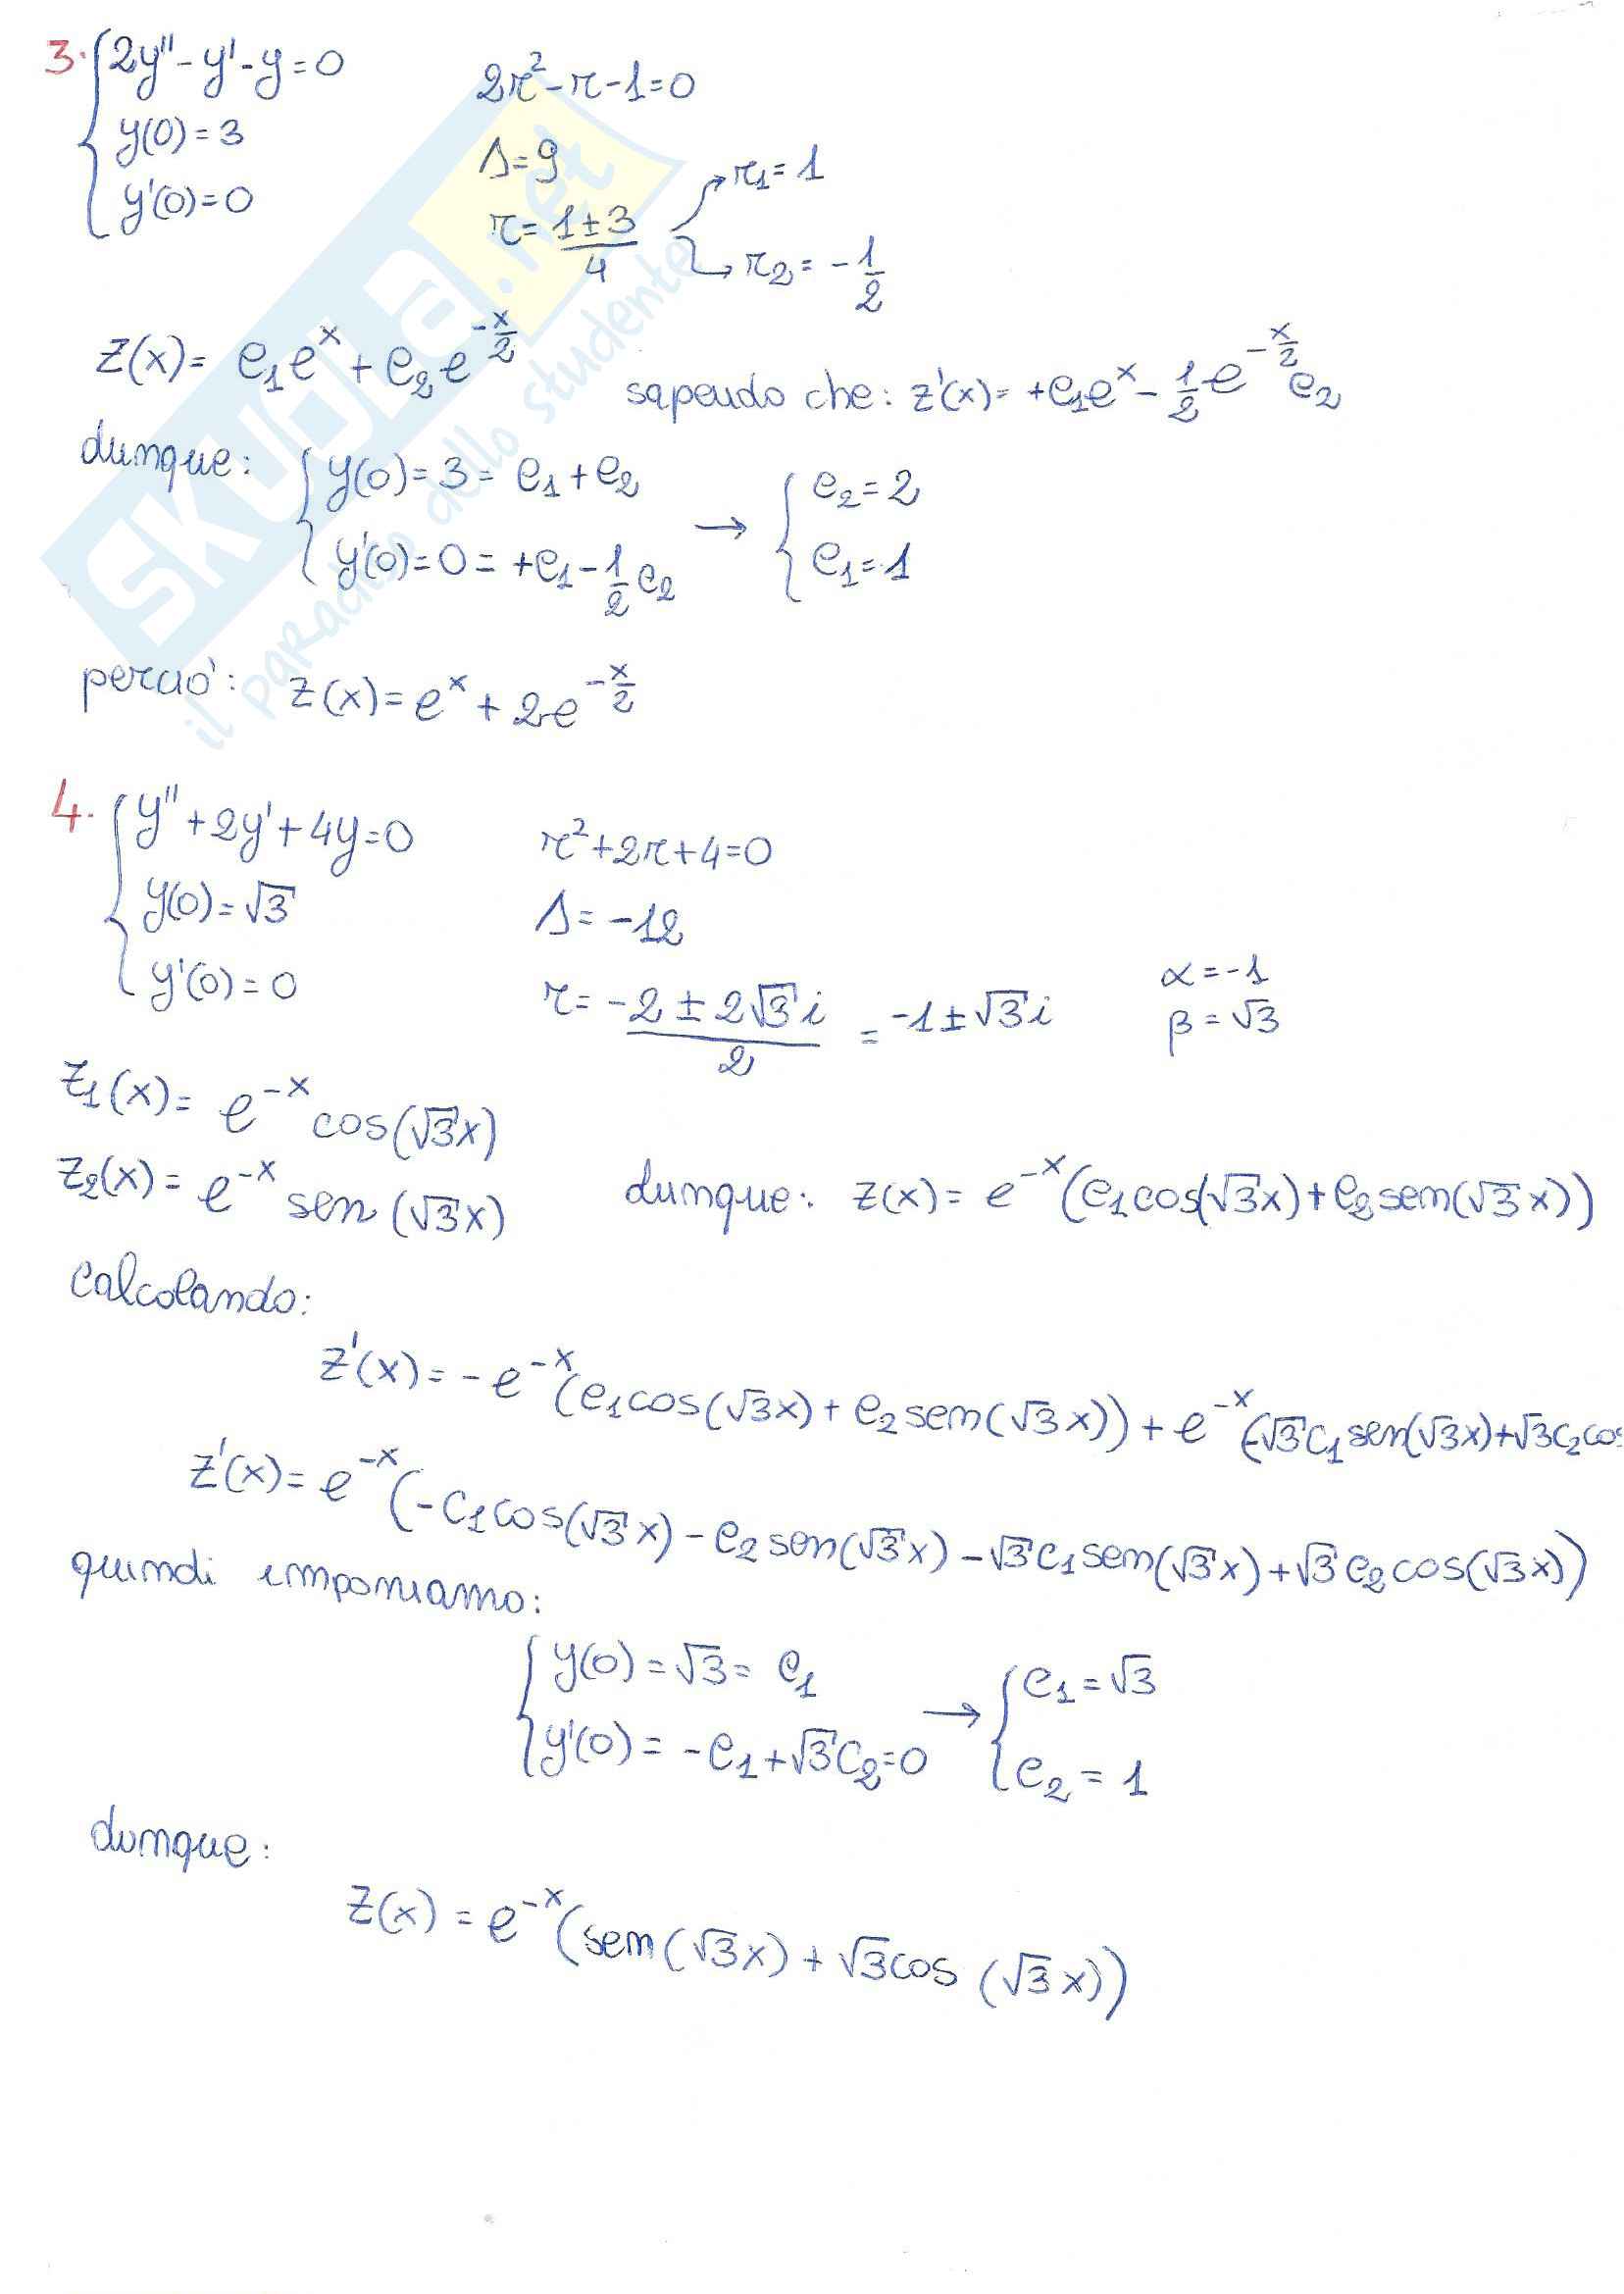 3. { 2y'' - y' - y = 0
y(0) = 3
y'(0) = 0
2r² - r - 1 = 0
Δ = 9
r = (1 ± 3)/4
r₁ = 1
r₂ = -1/2
z(x) = c₁e^x + c₂e^(-x/2)
sapendo che: z'(x) = +c₁e^x - 1/2 e^(-x/2) c₂
dunque: { y(0) = 3 = c₁ + c₂
y'(0) = 0 = +c₁ - 1/2 c₂
→ { c₂ = 2
c₁ = 1
perciò: z(x) = e^x + 2e^(-x/2)
4. { y'' + 2y' + 4y = 0
y(0) = √3
y'(0) = 0
r² + 2r + 4 = 0
Δ = -12
r = (-2 ± 2√3 i)/2 = -1 ± √3 i
α = -1
β = √3
z₁(x) = e^(-x) cos(√3x)
z₂(x) = e^(-x) sen(√3x)
dunque: z(x) = e^(-x)(c₁cos(√3x) + c₂sen(√3x))
calcolando:
z'(x) = -e^(-x)(c₁cos(√3x) + c₂sen(√3x)) + e^(-x)(-√3c₁sen(√3x) + √3c₂cos
z'(x) = e^(-x)(-c₁cos(√3x) - c₂sen(√3x) - √3c₁sen(√3x) + √3c₂cos(√3x))
quindi imponiamo:
{ y(0) = √3 = c₁
y'(0) = -c₁ + √3c₂ = 0
→ { c₁ = √3
c₂ = 1
dunque:
z(x) = e^(-x)(sen(√3x) + √3cos(√3x))
SKUOLA.net
il paradiso dello studente